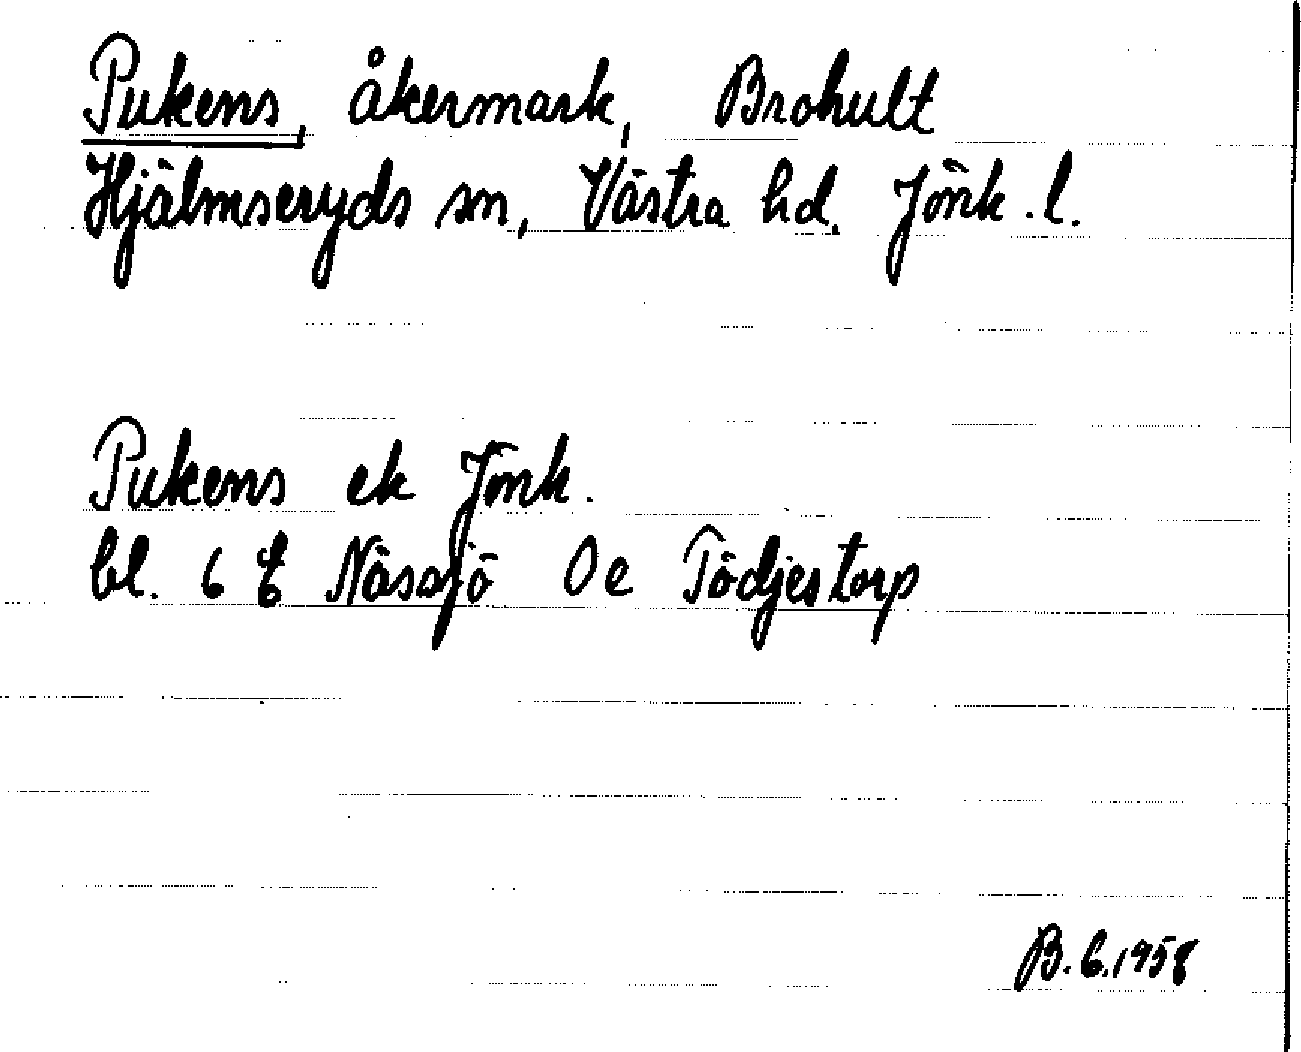 Pukens, åkermark, Brohult
Hjälmseryds sn, Västra hd, Jönk. l.
Pukens ek Jönk.
bl. 6 E Nässjö 0 e Tödjestorp
B. G. 1958